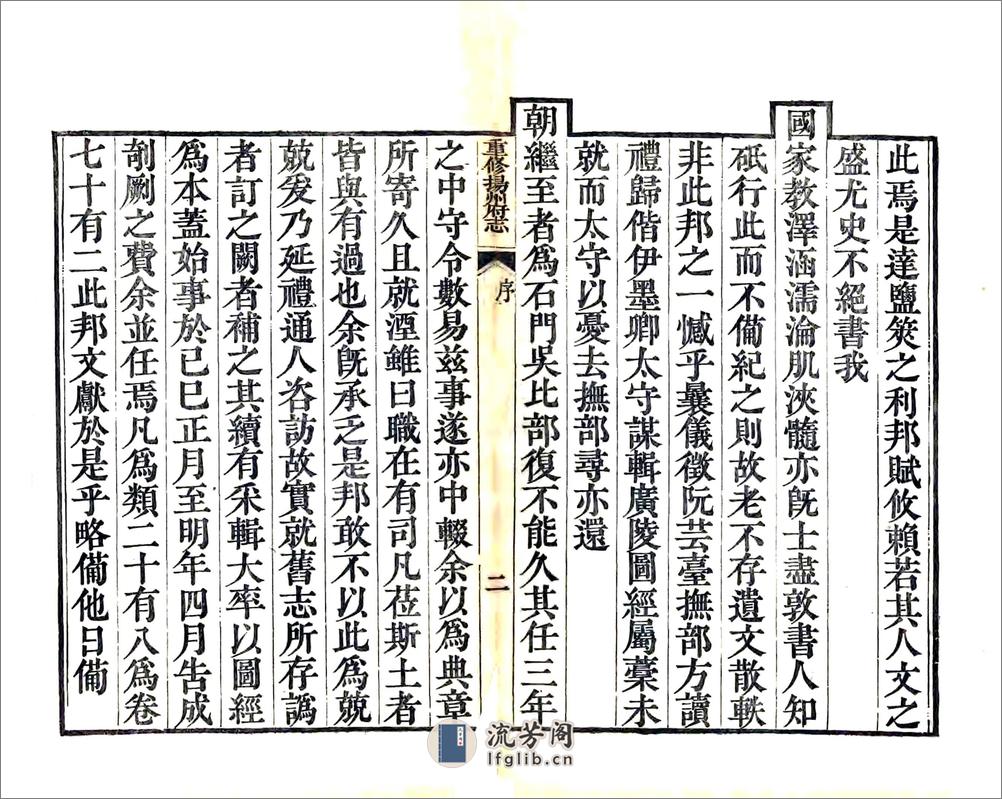 此焉是達鹽筴之利邦賦攸賴若其人文之
盛尤史不絕書我
國家教澤涵濡淪肌浹髓亦旣士盡敦書人知
砥行此而不備紀之則故老不存遺文散軼
非此邦之一憾乎曩儀徵阮芸臺撫部方讀
禮歸偕伊墨卿太守謀輯廣陵圖經屬藁未
就而太守以憂去撫部尋亦還
朝繼至者爲石門吳比部復不能久其任三年
重修揚州府志
序
二
之中守令數易玆事遂亦中輟余以爲典章
所寄久且就湮雖曰職在有司凡莅斯土者
皆與有過也余旣承乏是邦敢不以此爲兢
兢爰乃延禮通人咨訪故實就舊志所存譌
者訂之闕者補之其續有采輯大率以圖經
爲本蓋始事於己巳正月至明年四月告成
剞劂之費余並任焉凡爲類二十有八爲卷
七十有二此邦文獻於是乎略備他日備
流芳阁
lfglib.cn